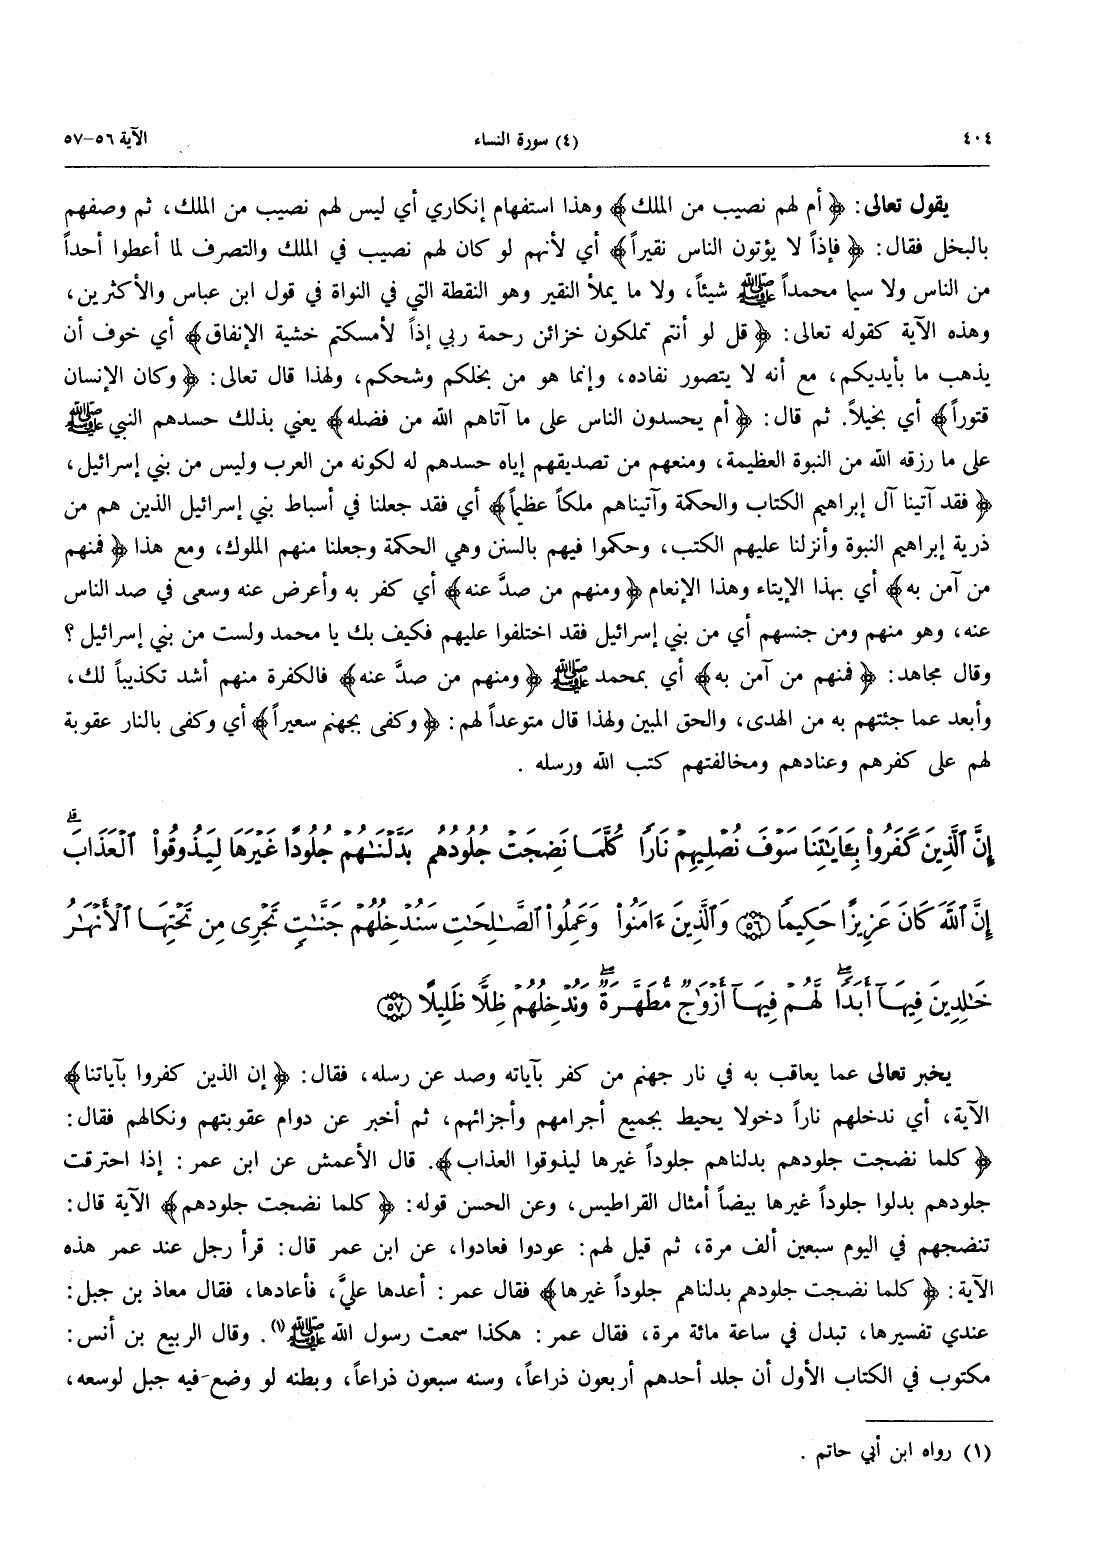 ٤٠٤ (٤) سورة النساء الآية ٥٦-٥٧
يقول تعالى: ﴿أم لهم نصيب من الملك﴾ وهذا استفهام إنكاري أي ليس لهم نصيب من الملك، ثم وصفهم
بالبخل فقال: ﴿فإذاً لا يؤتون الناس نقيراً﴾ أي لأنهم لو كان لهم نصيب في الملك والتصرف لما أعطوا أحداً
من الناس ولا سيما محمداً ﷺ شيئاً، ولا ما يملأ النقير وهو النقطة التي في النواة في قول ابن عباس والأكثرين،
وهذه الآية كقوله تعالى: ﴿قل لو أنتم تملكون خزائن رحمة ربي إذاً لأمسكتم خشية الإنفاق﴾ أي خوف أن
يذهب ما بأيديكم، مع أنه لا يتصور نفاده، وإنما هو من بخلكم وشحكم، ولهذا قال تعالى: ﴿وكان الإنسان
قتوراً﴾ أي بخيلاً. ثم قال: ﴿أم يحسدون الناس على ما آتاهم الله من فضله﴾ يعني بذلك حسدهم النبي ﷺ
على ما رزقه الله من النبوة العظيمة، ومنعهم من تصديقهم إياه حسدهم له لكونه من العرب وليس من بني إسرائيل،
﴿فقد آتينا آل إبراهيم الكتاب والحكمة وآتيناهم ملكاً عظيماً﴾ أي فقد جعلنا في أسباط بني إسرائيل الذين هم من
ذرية إبراهيم النبوة وأنزلنا عليهم الكتب، وحكموا فيهم بالسنن وهي الحكمة وجعلنا منهم الملوك، ومع هذا ﴿فمنهم
من آمن به﴾ أي بهذا الإيتاء وهذا الإنعام ﴿ومنهم من صدَّ عنه﴾ أي كفر به وأعرض عنه وسعى في صد الناس
عنه، وهو منهم ومن جنسهم أي من بني إسرائيل فقد اختلفوا عليهم فكيف بك يا محمد ولست من بني إسرائيل؟
وقال مجاهد: ﴿فمنهم من آمن به﴾ أي بمحمد ﷺ ﴿ومنهم من صدَّ عنه﴾ فالكفرة منهم أشد تكذيباً لك،
وأبعد عما جئتهم به من الهدى، والحق المبين ولهذا قال متوعداً لهم: ﴿وكفى بجهنم سعيراً﴾ أي وكفى بالنار عقوبة
لهم على كفرهم وعنادهم ومخالفتهم كتب الله ورسله.
إِنَّ ٱلَّذِينَ كَفَرُواْ بِـَٔايَـٰتِنَا سَوْفَ نُصْلِيهِمْ نَارًا كُلَّمَا نَضِجَتْ جُلُودُهُم بَدَّلْنَـٰهُمْ جُلُودًا غَيْرَهَا لِيَذُوقُواْ ٱلْعَذَابَ ۗ
إِنَّ ٱللَّهَ كَانَ عَزِيزًا حَكِيمًا ﴿٥٦﴾ وَٱلَّذِينَ ءَامَنُواْ وَعَمِلُواْ ٱلصَّـٰلِحَـٰتِ سَنُدْخِلُهُمْ جَنَّـٰتٍ تَجْرِى مِن تَحْتِهَا ٱلْأَنْهَـٰرُ
خَـٰلِدِينَ فِيهَآ أَبَدًا ۖ لَّهُمْ فِيهَآ أَزْوَٰجٌ مُّطَهَّرَةٌ ۖ وَنُدْخِلُهُمْ ظِلًّا ظَلِيلًا ﴿٥٧﴾
يخبر تعالى عما يعاقب به في نار جهنم من كفر بآياته وصد عن رسله، فقال: ﴿إن الذين كفروا بآياتنا﴾
الآية، أي ندخلهم ناراً دخولا يحيط بجميع أجرامهم وأجزائهم، ثم أخبر عن دوام عقوبتهم ونكالهم فقال:
﴿كلما نضجت جلودهم بدلناهم جلوداً غيرها ليذوقوا العذاب﴾. قال الأعمش عن ابن عمر: إذا احترقت
جلودهم بدلوا جلوداً غيرها بيضاً أمثال القراطيس، وعن الحسن قوله: ﴿كلما نضجت جلودهم﴾ الآية قال:
تنضجهم في اليوم سبعين ألف مرة، ثم قيل لهم: عودوا فعادوا، عن ابن عمر قال: قرأ رجل عند عمر هذه
الآية: ﴿كلما نضجت جلودهم بدلناهم جلوداً غيرها﴾ فقال عمر: أعدها عليَّ، فأعادها، فقال معاذ بن جبل:
عندي تفسيرها، تبدل في ساعة مائة مرة، فقال عمر: هكذا سمعت رسول الله ﷺ(١). وقال الربيع بن أنس:
مكتوب في الكتاب الأول أن جلد أحدهم أربعون ذراعاً، وسنه سبعون ذراعاً، وبطنه لو وضع فيه جبل لوسعه،
(١) رواه ابن أبي حاتم.